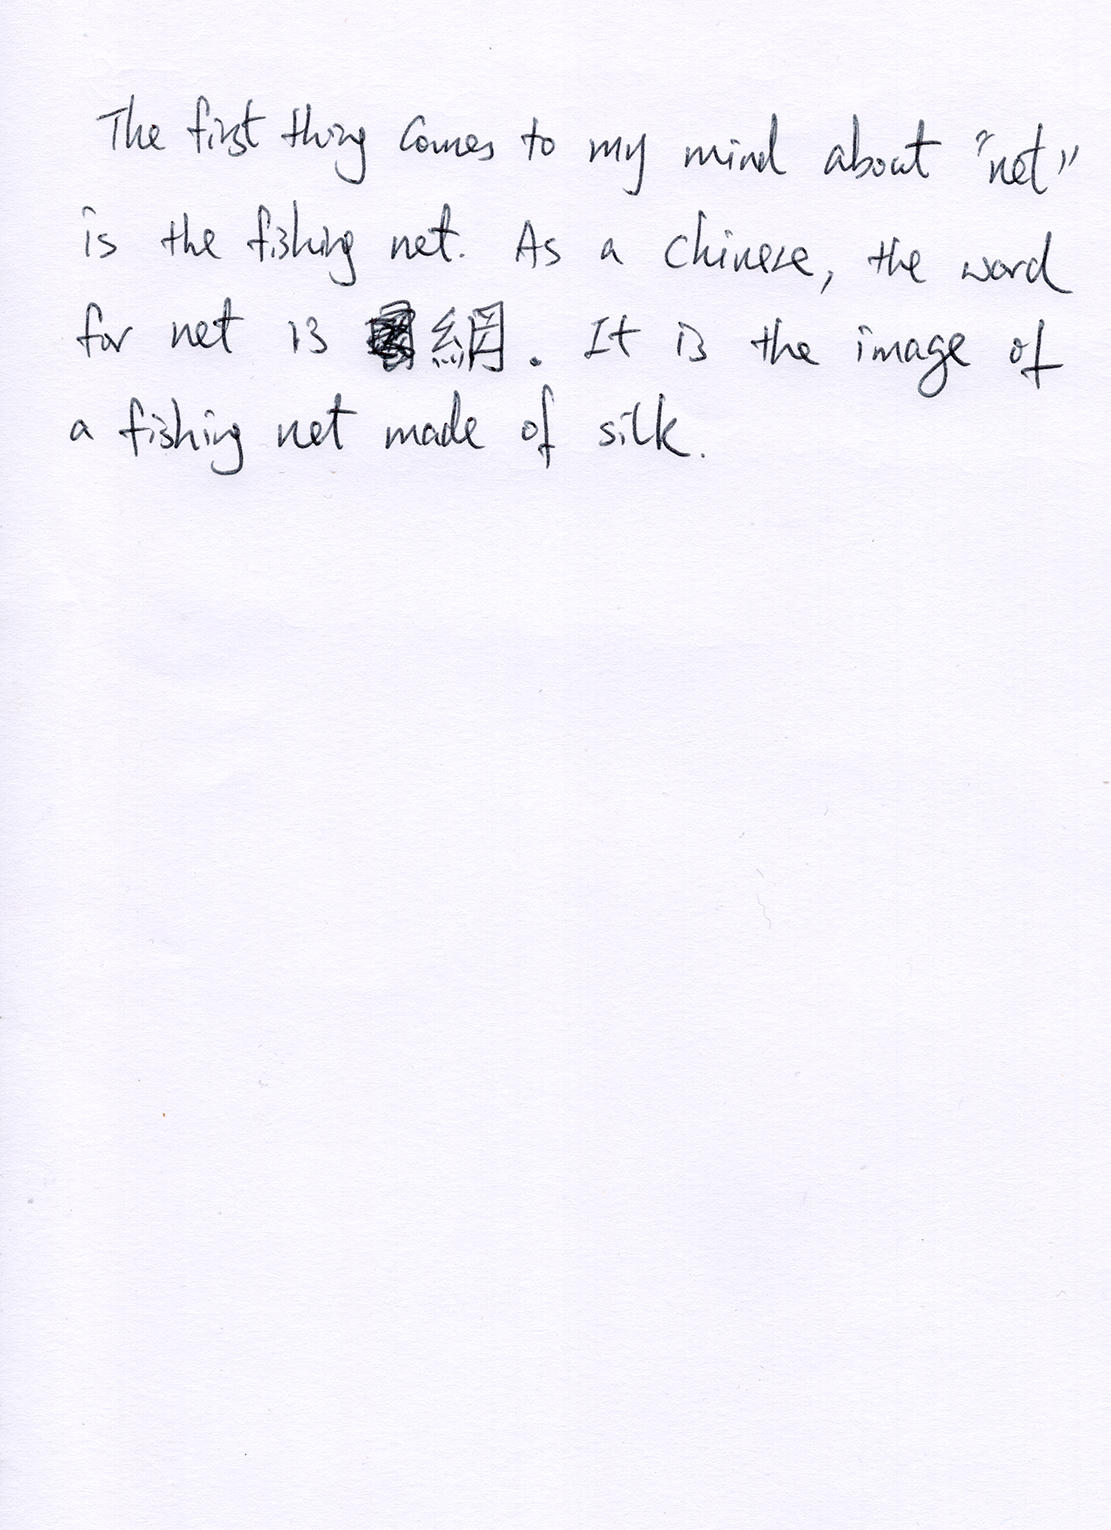 The first thing comes to my mind about "net"
is the fishing net. As a Chinese, the word
for net is 網. It is the image of
a fishing net made of silk.